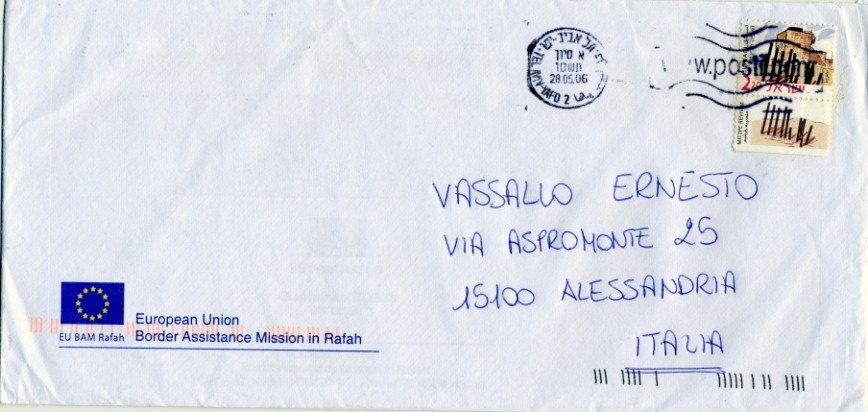 תל אביב-יפו
א סיון
תשסו
28.05.06
TEL AVIV-YAFO 2
w.posti
ישראל
MITZPE REVIVIM
VASSALLO ERNESTO
VIA ASPROMONTE 25
15100 ALESSANDRIA
ITALIA
EU BAM Rafah
European Union
Border Assistance Mission in Rafah